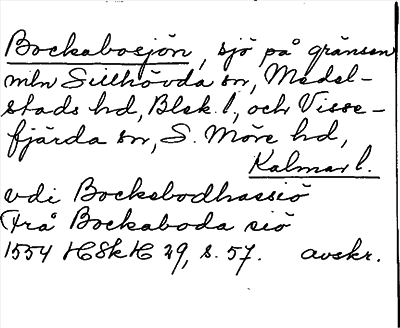 Bockabosjön, sjö på gränsen
mln Sillhövda sn, Medel-
stads hd, Blek. l., och Visse-
fjärda sn, S. Möre hd,
Kalmar l.
vdi Bocksbodhassiö
frå Bockaboda siö
1554 HSkH 29, s. 57. avskr.